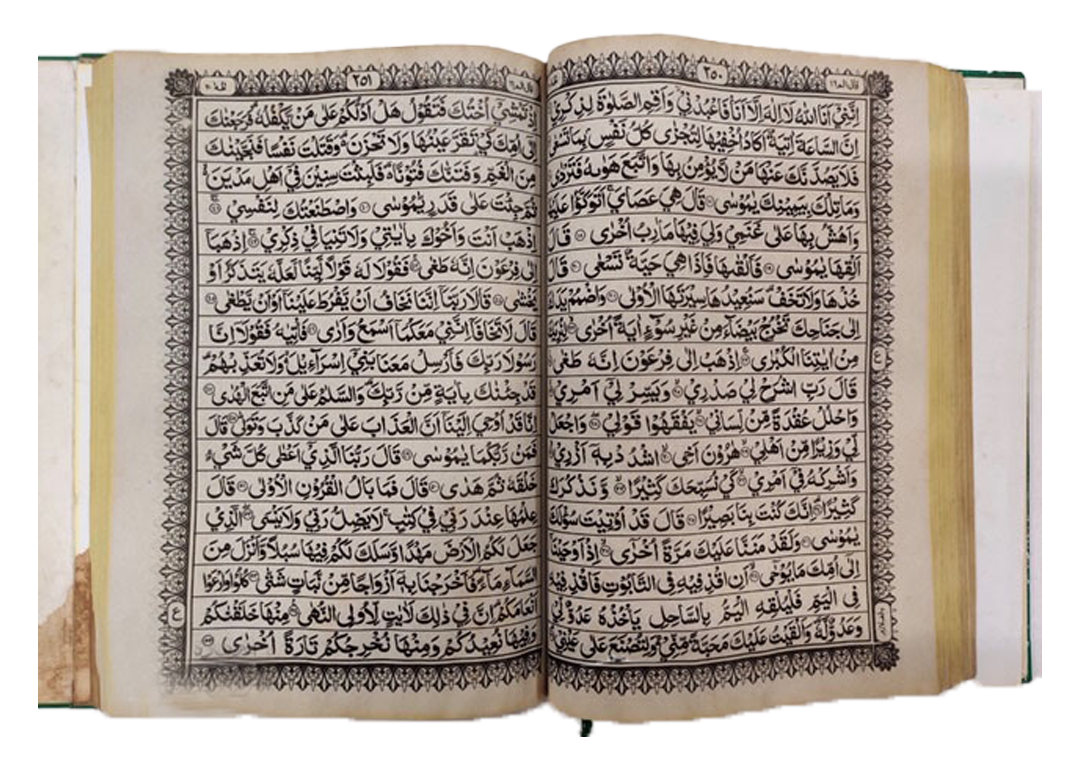 قال الم ١٦
٢٥٠
اِنَّنِيْٓ اَنَا اللّٰهُ لَآ اِلٰهَ اِلَّآ اَنَا فَاعْبُدْنِيْ وَاَقِمِ الصَّلٰوةَ لِذِكْرِيْ
اِنَّ السَّاعَةَ اٰتِيَةٌ اَكَادُ اُخْفِيْهَا لِتُجْزٰى كُلُّ نَفْسٍۭ بِمَا تَسْعٰى
فَلَا يَصُدَّنَّكَ عَنْهَا مَنْ لَّا يُؤْمِنُ بِهَا وَاتَّبَعَ هَوٰىهُ فَتَرْدٰى
وَمَا تِلْكَ بِيَمِيْنِكَ يٰمُوْسٰى ١٧ قَالَ هِيَ عَصَايَ اَتَوَكَّؤُا عَلَيْهَا
وَاَهُشُّ بِهَا عَلٰى غَنَمِيْ وَلِيَ فِيْهَا مَاٰرِبُ اُخْرٰى ١٨ قَالَ
اَلْقِهَا يٰمُوْسٰى ١٩ فَاَلْقٰىهَا فَاِذَا هِيَ حَيَّةٌ تَسْعٰى ٢٠ قَالَ
خُذْهَا وَلَا تَخَفْ سَنُعِيْدُهَا سِيْرَتَهَا الْاُوْلٰى ٢١ وَاضْمُمْ يَدَكَ
اِلٰى جَنَاحِكَ تَخْرُجْ بَيْضَآءَ مِنْ غَيْرِ سُوْٓءٍ اٰيَةً اُخْرٰى ٢٢ لِنُرِيَكَ
مِنْ اٰيٰتِنَا الْكُبْرٰى ٢٣ اِذْهَبْ اِلٰى فِرْعَوْنَ اِنَّهٗ طَغٰى
قَالَ رَبِّ اشْرَحْ لِيْ صَدْرِيْ ٢٥ وَيَسِّرْ لِيْٓ اَمْرِيْ
وَاحْلُلْ عُقْدَةً مِّنْ لِّسَانِيْ ٢٧ يَفْقَهُوْا قَوْلِيْ ٢٨ وَاجْعَلْ
لِّيْ وَزِيْرًا مِّنْ اَهْلِيْ ٢٩ هٰرُوْنَ اَخِى ٣٠ اشْدُدْ بِهٖٓ اَزْرِيْ
وَاَشْرِكْهُ فِيْٓ اَمْرِيْ ٣٢ كَيْ نُسَبِّحَكَ كَثِيْرًا ٣٣ وَّنَذْكُرَكَ
كَثِيْرًا ٣٤ اِنَّكَ كُنْتَ بِنَا بَصِيْرًا ٣٥ قَالَ قَدْ اُوْتِيْتَ سُؤْلَكَ
يٰمُوْسٰى ٣٦ وَلَقَدْ مَنَنَّا عَلَيْكَ مَرَّةً اُخْرٰٓى ٣٧ اِذْ اَوْحَيْنَآ
اِلٰٓى اُمِّكَ مَا يُوْحٰٓى ٣٨ اَنِ اقْذِفِيْهِ فِى التَّابُوْتِ فَاقْذِفِيْهِ
فِى الْيَمِّ فَلْيُلْقِهِ الْيَمُّ بِالسَّاحِلِ يَاْخُذْهُ عَدُوٌّ لِّيْ
وَعَدُوٌّ لَّهٗ وَاَلْقَيْتُ عَلَيْكَ مَحَبَّةً مِّنِّيْ وَلِتُصْنَعَ عَلٰى عَيْنِيْ
قال الم ١٦
٢٥١
اِذْ تَمْشِيْٓ اُخْتُكَ فَتَقُوْلُ هَلْ اَدُلُّكُمْ عَلٰى مَنْ يَّكْفُلُهٗ فَرَجَعْنٰكَ
اِلٰٓى اُمِّكَ كَيْ تَقَرَّ عَيْنُهَا وَلَا تَحْزَنَ وَقَتَلْتَ نَفْسًا فَنَجَّيْنٰكَ
مِنَ الْغَمِّ وَفَتَنّٰكَ فُتُوْنًا فَلَبِثْتَ سِنِيْنَ فِيْٓ اَهْلِ مَدْيَنَ
ثُمَّ جِئْتَ عَلٰى قَدَرٍ يّٰمُوْسٰى ٤٠ وَاصْطَنَعْتُكَ لِنَفْسِيْ ٤١
اِذْهَبْ اَنْتَ وَاَخُوْكَ بِاٰيٰتِيْ وَلَا تَنِيَا فِيْ ذِكْرِيْ ٤٢ اِذْهَبَآ
اِلٰى فِرْعَوْنَ اِنَّهٗ طَغٰى ٤٣ فَقُوْلَا لَهٗ قَوْلًا لَّيِّنًا لَّعَلَّهٗ يَتَذَكَّرُ اَوْ
يَخْشٰى ٤٤ قَالَا رَبَّنَآ اِنَّنَا نَخَافُ اَنْ يَّفْرُطَ عَلَيْنَآ اَوْ اَنْ يَّطْغٰى ٤٥
قَالَ لَا تَخَافَآ اِنَّنِيْ مَعَكُمَآ اَسْمَعُ وَاَرٰى ٤٦ فَاْتِيٰهُ فَقُوْلَآ اِنَّا
رَسُوْلَا رَبِّكَ فَاَرْسِلْ مَعَنَا بَنِيْٓ اِسْرَآءِيْلَ وَلَا تُعَذِّبْهُمْ
قَدْ جِئْنٰكَ بِاٰيَةٍ مِّنْ رَّبِّكَ وَالسَّلٰمُ عَلٰى مَنِ اتَّبَعَ الْهُدٰى ٤٧
اِنَّا قَدْ اُوْحِيَ اِلَيْنَآ اَنَّ الْعَذَابَ عَلٰى مَنْ كَذَّبَ وَتَوَلّٰى ٤٨ قَالَ
فَمَنْ رَّبُّكُمَا يٰمُوْسٰى ٤٩ قَالَ رَبُّنَا الَّذِيْٓ اَعْطٰى كُلَّ شَيْءٍ
خَلْقَهٗ ثُمَّ هَدٰى ٥٠ قَالَ فَمَا بَالُ الْقُرُوْنِ الْاُوْلٰى ٥١ قَالَ
عِلْمُهَا عِنْدَ رَبِّيْ فِيْ كِتٰبٍ لَا يَضِلُّ رَبِّيْ وَلَا يَنْسَى ٥٢ الَّذِيْ
جَعَلَ لَكُمُ الْاَرْضَ مَهْدًا وَّسَلَكَ لَكُمْ فِيْهَا سُبُلًا وَّاَنْزَلَ مِنَ
السَّمَآءِ مَآءً فَاَخْرَجْنَا بِهٖٓ اَزْوَاجًا مِّنْ نَّبَاتٍ شَتّٰى ٥٣ كُلُوْا وَارْعَوْا
اَنْعَامَكُمْ اِنَّ فِيْ ذٰلِكَ لَاٰيٰتٍ لِّاُولِى النُّهٰى ٥٤ مِنْهَا خَلَقْنٰكُمْ
وَفِيْهَا نُعِيْدُكُمْ وَمِنْهَا نُخْرِجُكُمْ تَارَةً اُخْرٰى ٥٥